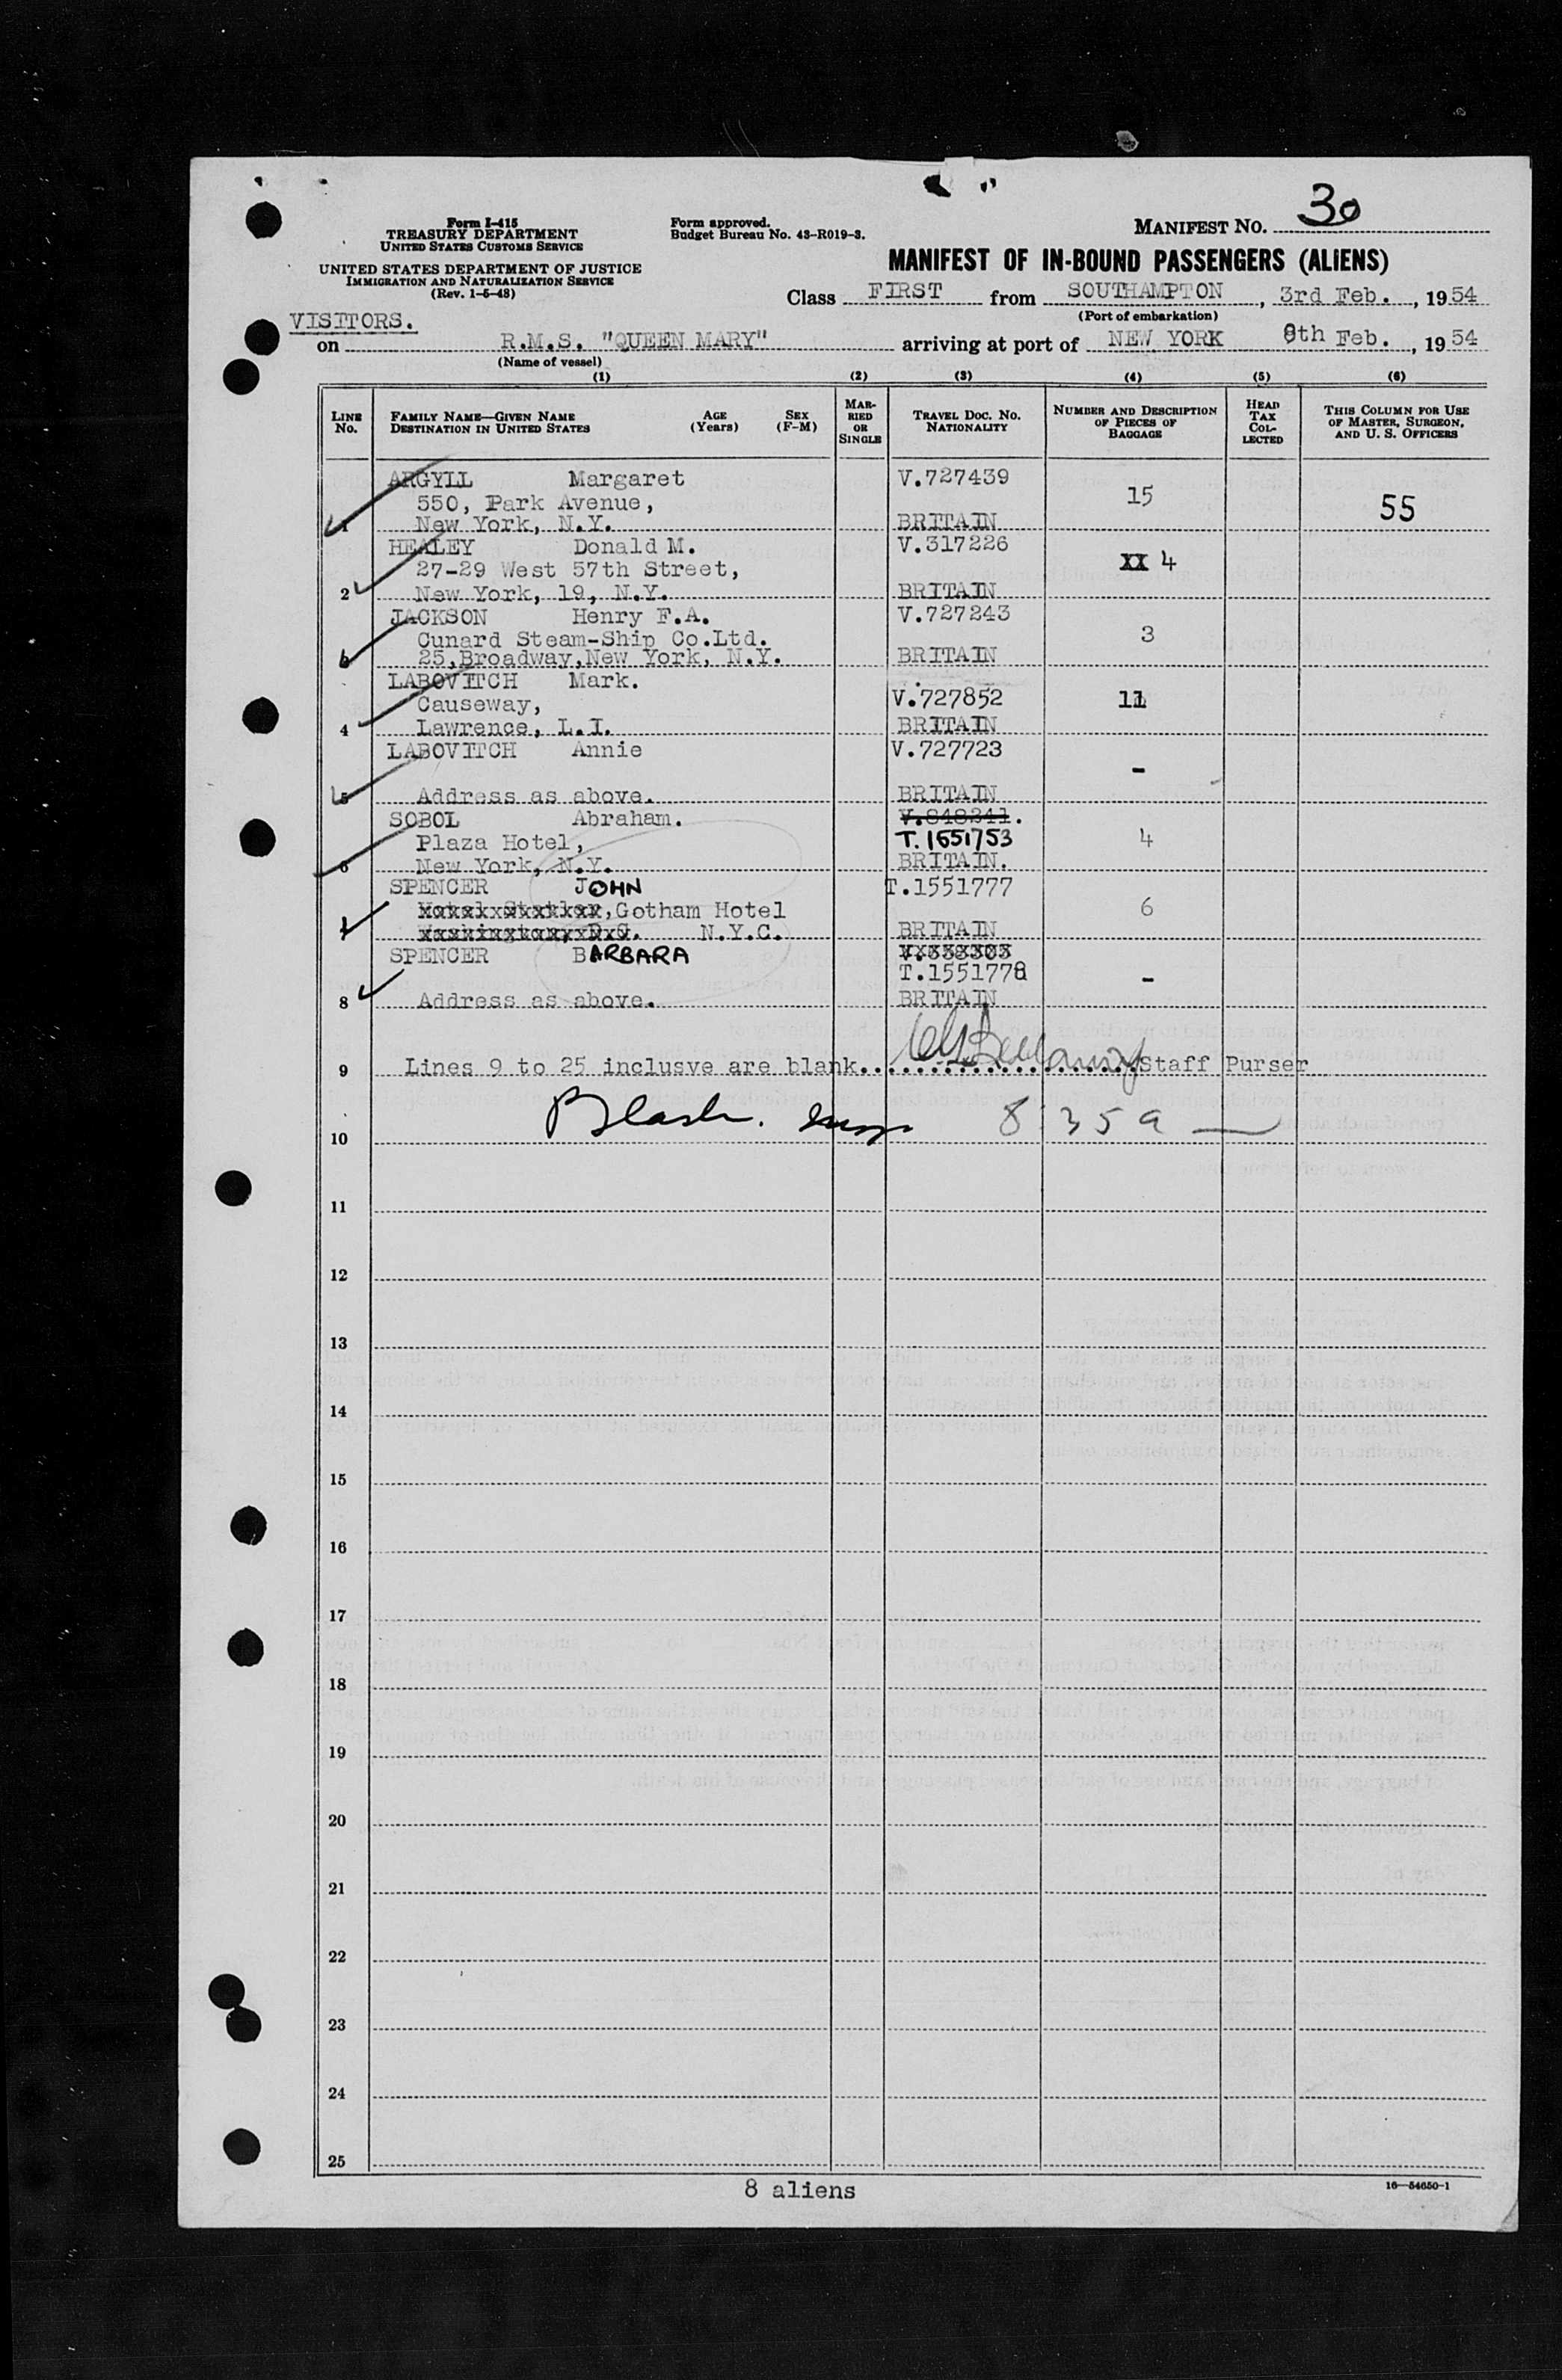 Form I-415
TREASURY DEPARTMENT
UNITED STATES CUSTOMS SERVICE
UNITED STATES DEPARTMENT OF JUSTICE
IMMIGRATION AND NATURALIZATION SERVICE
(Rev. 1-5-48)
Form approved.
Budget Bureau No. 43-R019-3.
MANIFEST NO. 30
MANIFEST OF IN-BOUND PASSENGERS (ALIENS)
Class FIRST from SOUTHAMPTON, 3rd Feb., 1954
(Port of embarkation)
VISITORS.
on R.M.S. "QUEEN MARY" arriving at port of NEW YORK 8th Feb., 1954
(Name of vessel)
(1) (2) (3) (4) (5) (6)
LINE No. FAMILY NAME—GIVEN NAME DESTINATION IN UNITED STATES AGE (Years) SEX (F-M) MARRIED OR SINGLE TRAVEL DOC. NO. NATIONALITY NUMBER AND DESCRIPTION OF PIECES OF BAGGAGE HEAD TAX COLLECTED THIS COLUMN FOR USE OF MASTER, SURGEON, AND U. S. OFFICERS
ARGYLL Margaret V.727439
550, Park Avenue, 15 55
1 New York, N.Y. BRITAIN
HEALEY Donald M. V.317226
27-29 West 57th Street, XX 4
2 New York, 19, N.Y. BRITAIN
JACKSON Henry F.A. V.727243
Cunard Steam-Ship Co.Ltd. 3
25,Broadway,New York, N.Y. BRITAIN
LABOVITCH Mark.
Causeway, V.727852 11
4 Lawrence, L.I. BRITAIN
LABOVITCH Annie V.727723
-
5 Address as above. BRITAIN
SOBOL Abraham. V.848341.
Plaza Hotel, T.1551753 4
6 New York, N.Y. BRITAIN.
SPENCER JOHN T.1551777
Gotham Hotel 6
N.Y.C. BRITAIN
SPENCER BARBARA
T.1551778 -
8 Address as above. BRITAIN
9 Lines 9 to 25 inclusve are blank. Staff Purser
10 8:35 a
11
12
13
14
15
16
17
18
19
20
21
22
23
24
25
8 aliens
16—54650-1